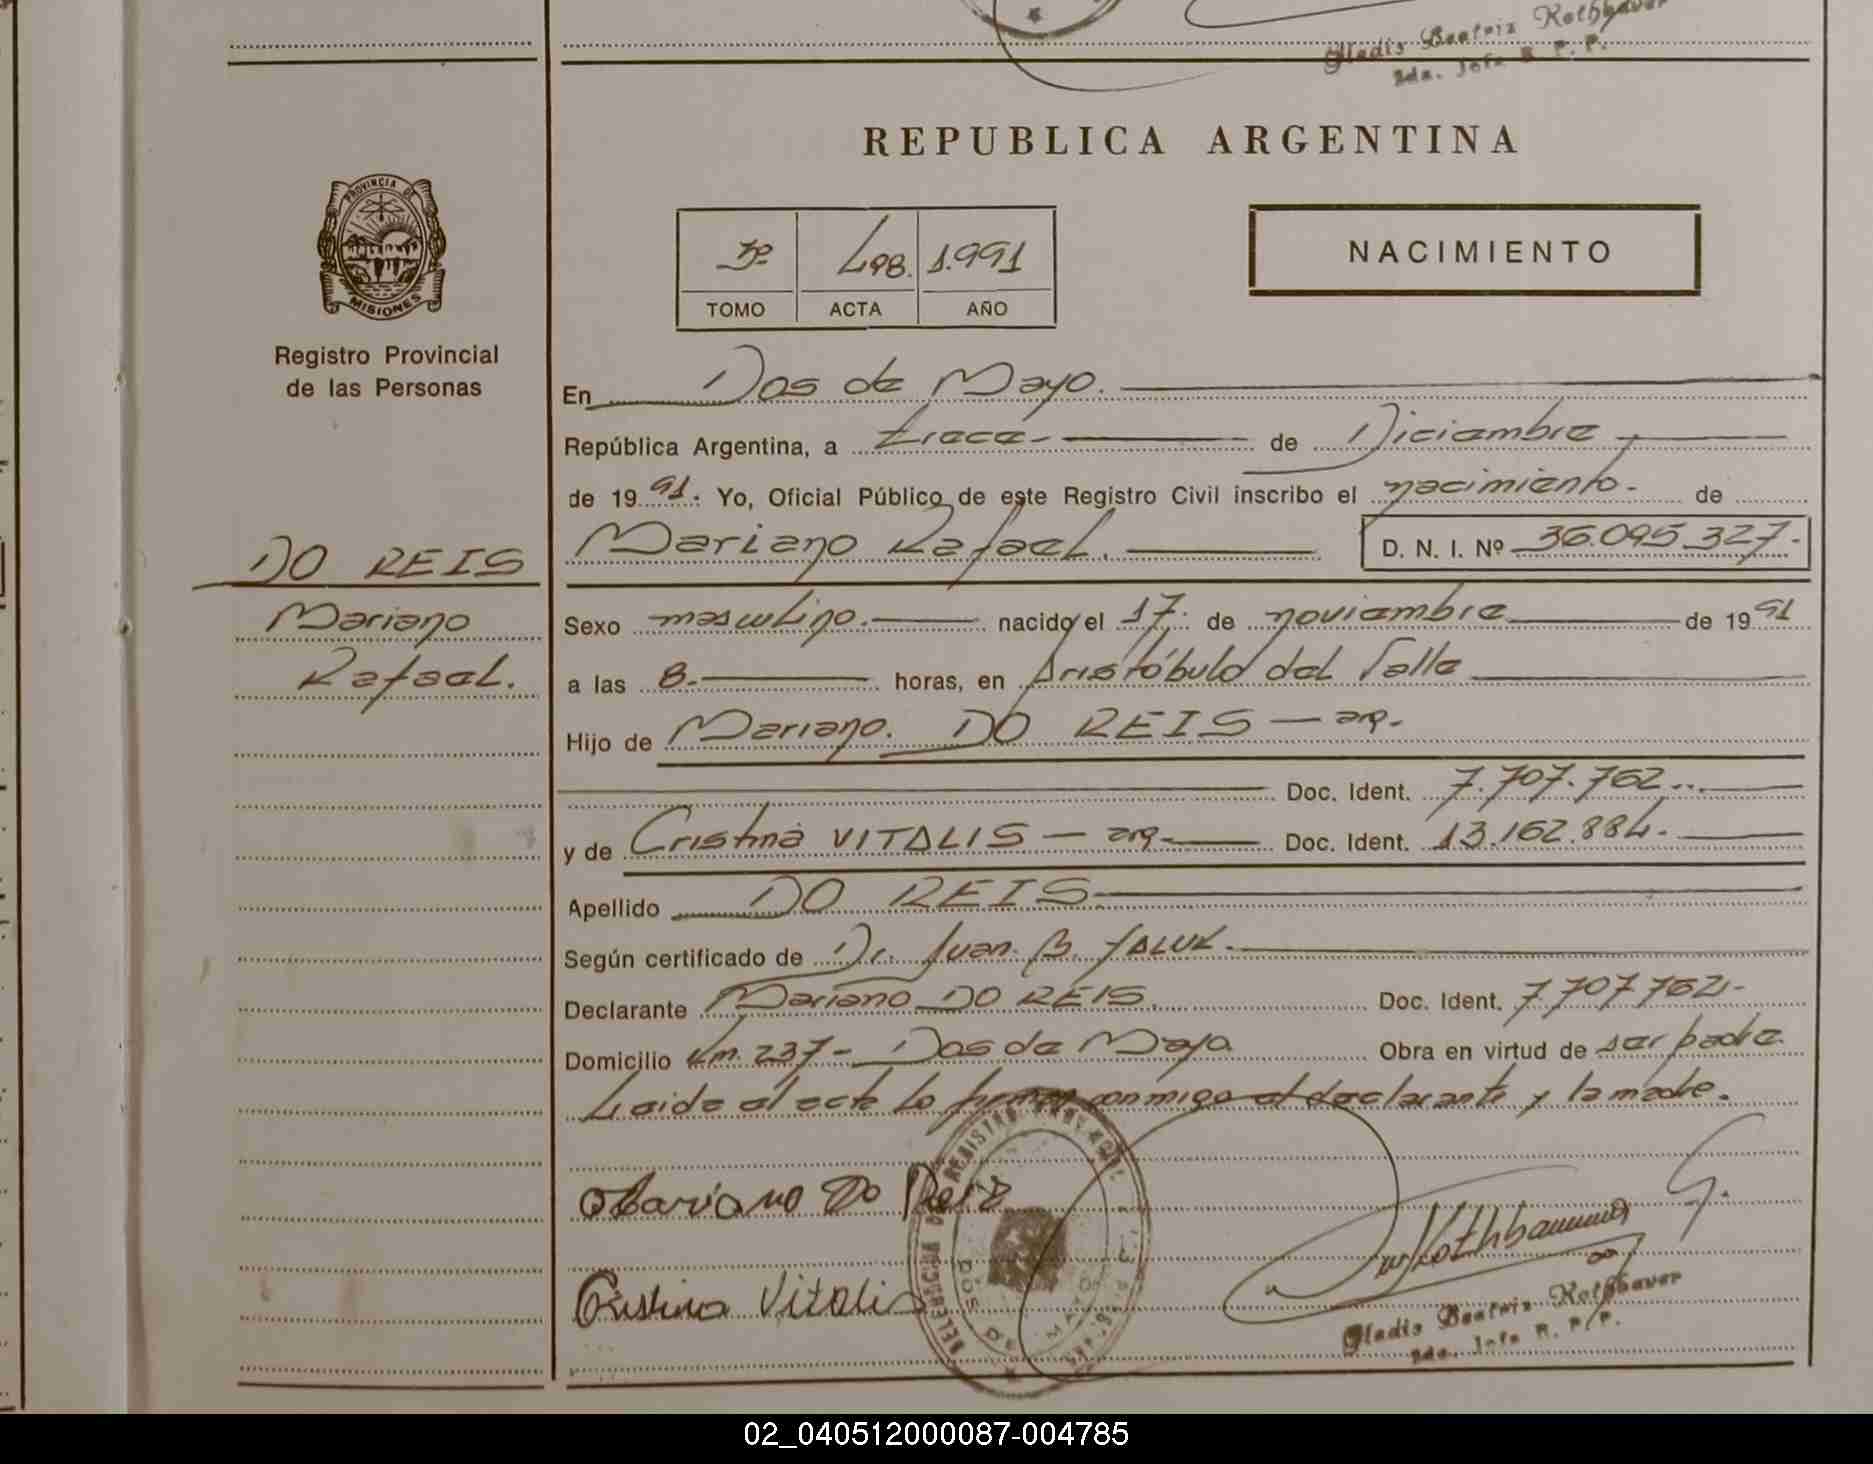 Gladis Beatriz Rothbaver
2da. Jefe R. P. P.
REPUBLICA ARGENTINA
PROVINCIA DE
MISIONES
Registro Provincial
de las Personas
1.991
TOMO ACTA AÑO
NACIMIENTO
En Dos de Mayo.
República Argentina, a trece - de Diciembre
de 19 91. Yo, Oficial Público de este Registro Civil inscribo el nacimiento - de
Mariano Rafael. D. N. I. Nº 36.095.327.-
DO REIS
Mariano
Rafael.
Sexo masculino. nacido el 17. de noviembre de 19 91
a las 8.- horas, en Aristóbulo del Valle
Hijo de Mariano. DO REIS - arg.
Doc. Ident. 7.707.762..-
y de Cristina VITALIS - arg.- Doc. Ident. 13.162.884.-
Apellido DO REIS
Según certificado de Dr. Juan. B.
Declarante Mariano DO REIS. Doc. Ident. 7.707.762.-
Domicilio Km. 237 - Dos de Mayo Obra en virtud de ser padre.
Leida el acta lo firman conmigo el declarante y la madre.
Mariano Do Reis
Cristina Vitalis
DOS DE MAYO
Gladis Beatriz Rothbaver
2da. Jefe R. P. P.
02_040512000087-004785